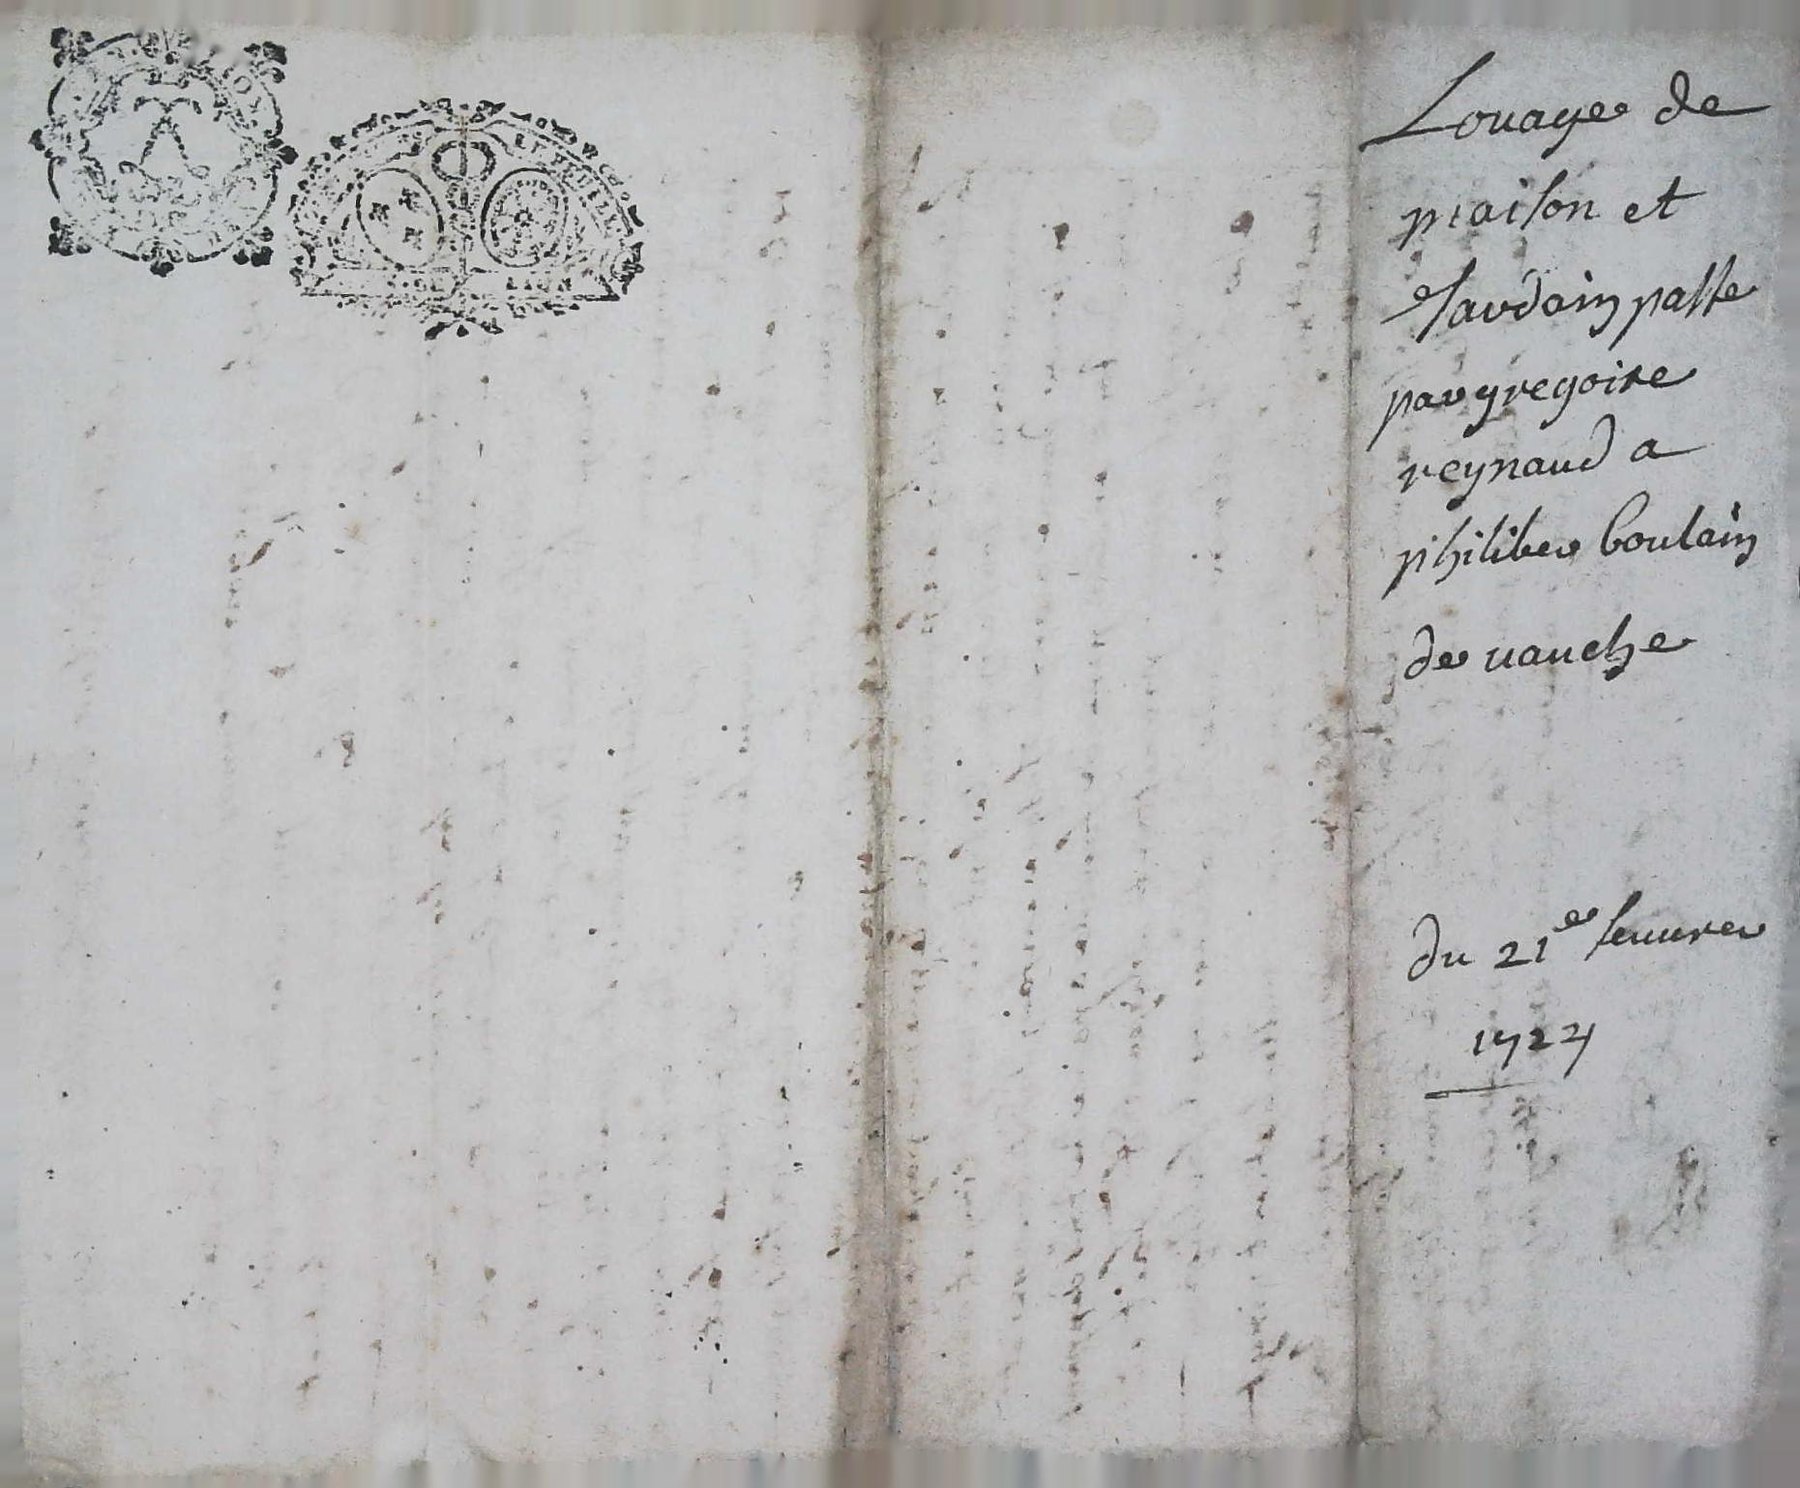 LION
Louage de
maison et
Jardain passe
par gregoire
reynaud a
philiber boulain
de vauche
du 21e feuurer
1727